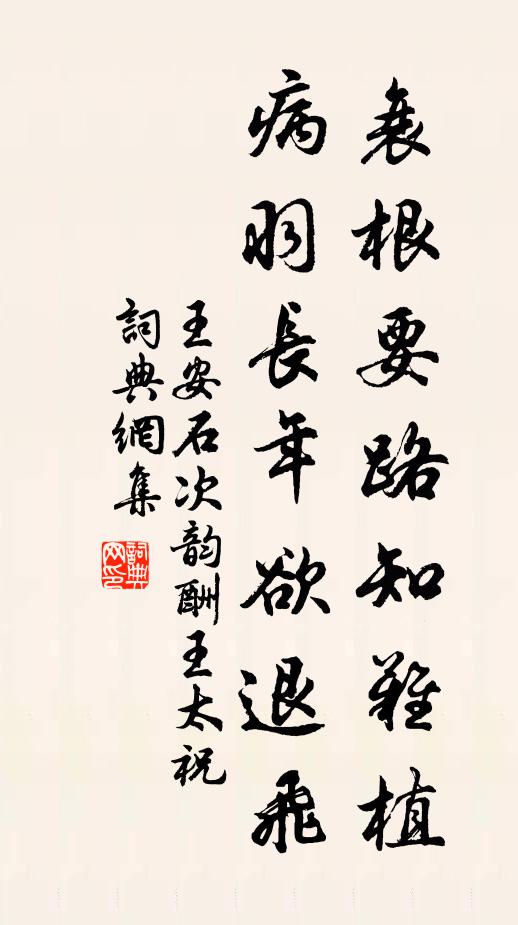 衰根要路知難植
病羽長年欲退飛
王安石次韵酬王太祝
詞典網集
詞典网印